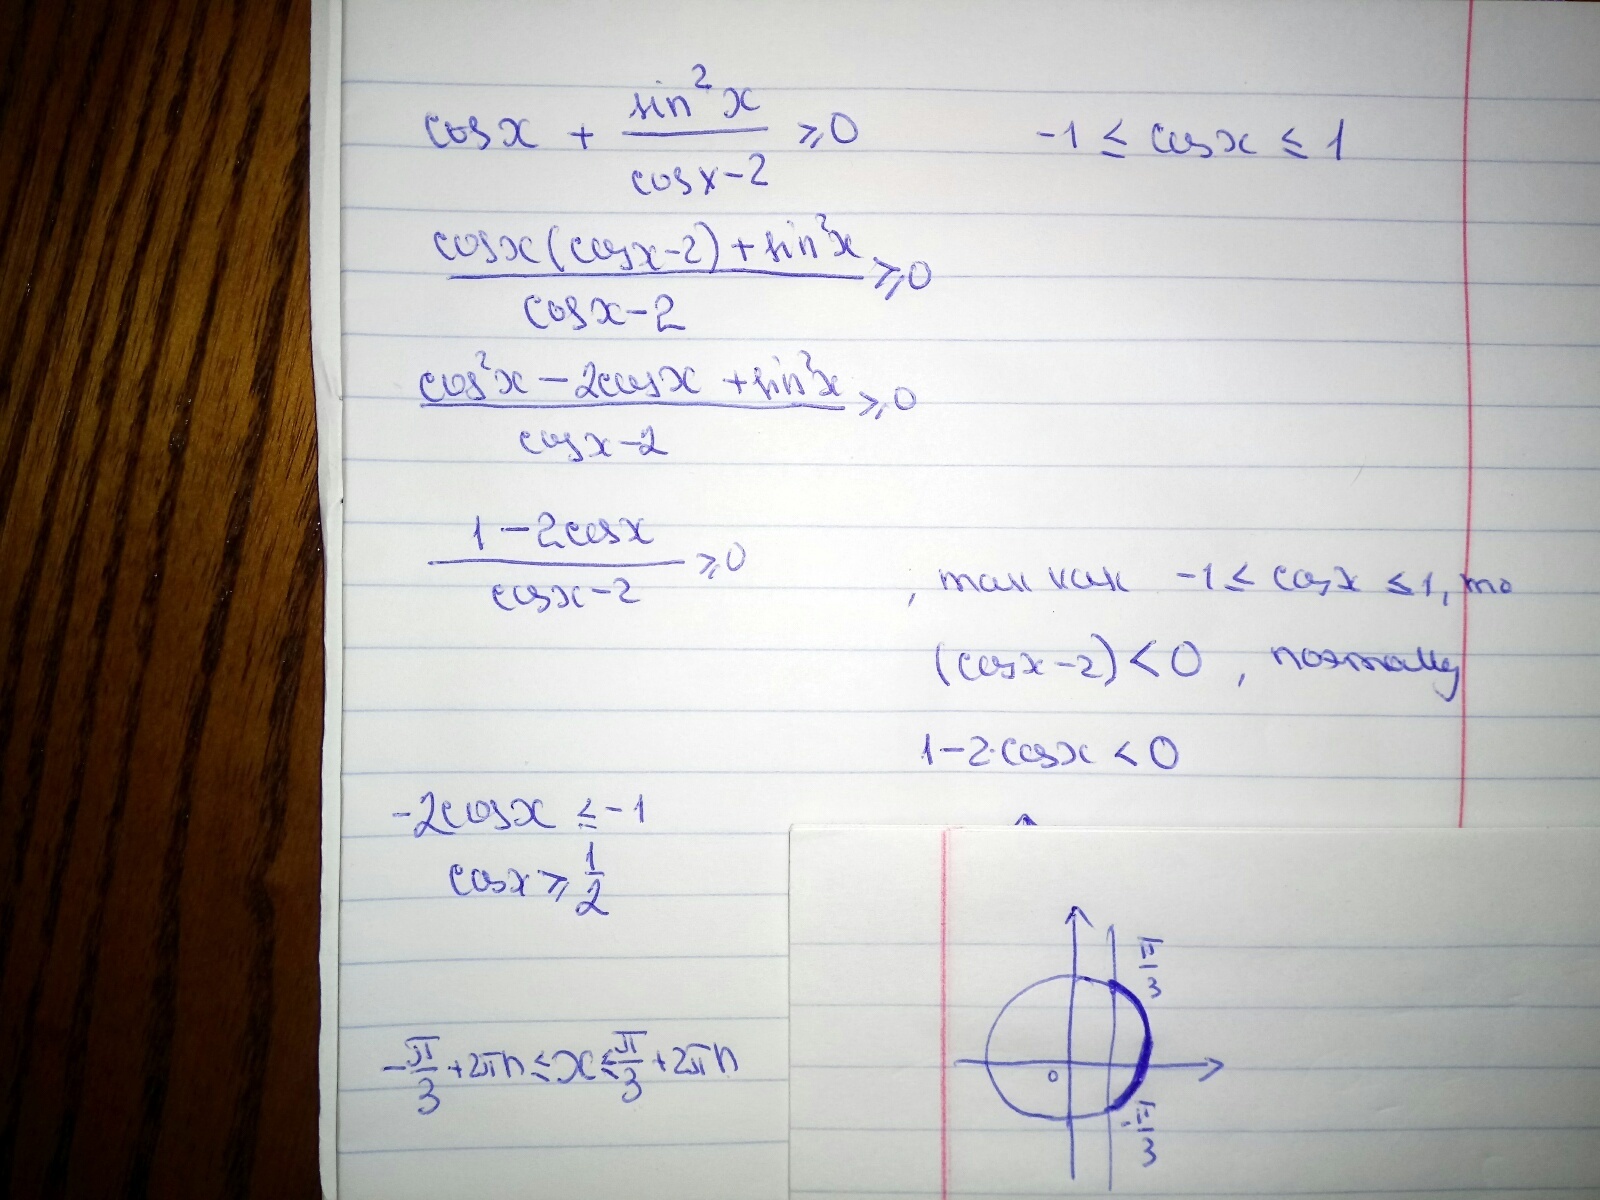 cosx + sin²x / cosx-2 ⩾0
-1 ≤ cosx ≤ 1
cosx(cosx-2)+sin²x / cosx-2 ⩾0
cos²x - 2cosx + sin²x / cosx-2 ⩾0
1-2cosx / cosx-2 ⩾0
, так как -1 ≤ cosx ≤ 1, то
(cosx-2)<0, поэтому
1-2·cosx < 0
-2cosx ≤ -1
cosx ⩾ 1/2
-π/3 + 2πn ≤ x ≤ π/3 + 2πn
π/3
0
-π/3